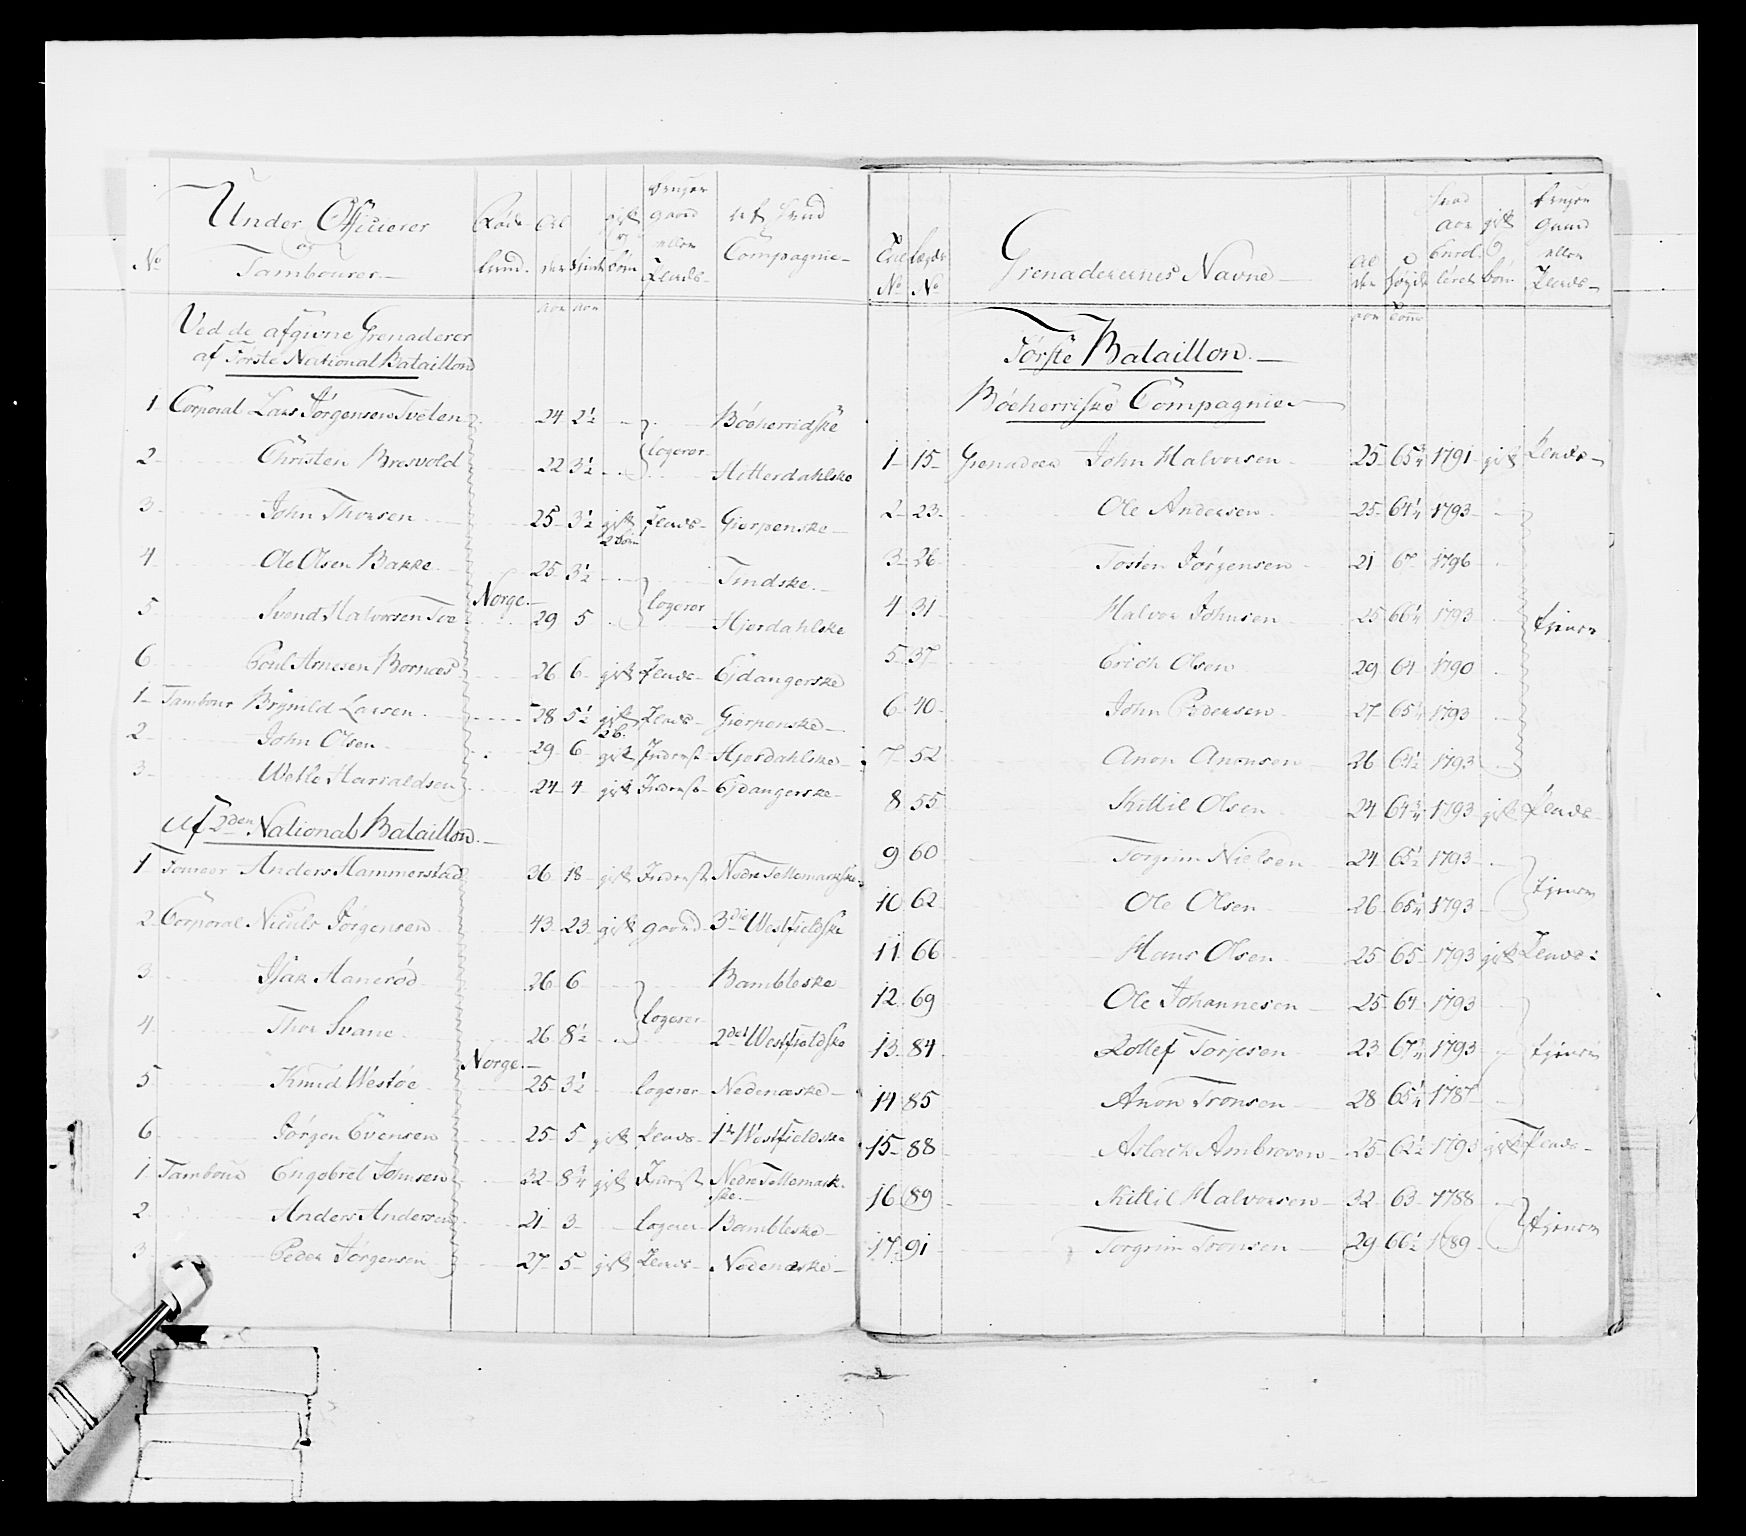 No
Under Officierer
og
Tambourer
Føde
Land.
Al
der
tjent
gift
og
børn
bruger
gaard
eller
Plads
af hvad
Compagnie
aar aar
Ved de afgivne Grenaderer
af Første National Bataillon
1 Corporal Lars Jørgensen Tveten 24 2½ Böeherridske
2 Christen Bresvold 22 3½ logerer Hitterdahlske
3 John Thorsen 25 3½ gift Plads Gierpenske
2 børn
4 Ole Olsen Bakke 25 3½ Tindske
Norge
5 Svend Halvorsen Toe 29 5 logerer Hjerdahlske
6 Poul Arnesen Bornæs 26 6 gift Plads Eidangerske
1 Tambour Brynild Larsen 28 5½ gift Plads Gierpenske
2 b.
2 John Olsen 29 6 gift Inderst Hjerdahlske
3 Wetle Harraldsen 24 4 gift Inderst Eidangerske
Af 2den National Bataillon
1 Fourer Anders Hammerstad 36 18 gift Inderst Nedre Tellemarkske
2 Corporal Niculs Jørgensen 43 23 gift gaard 3die Westfieldske
3 Isak Hanerød 26 6 Bambleske
4 Thor Svane 26 8½ logerer 2det Westfieldske
Norge
5 Knud Westøe 25 3½ logerer Nedenæske
6 Jørgen Evensen 25 5 gift Plads 1te Westfieldske
1 Tambour Engebret Johnsen 32 8¾ gift Inderst Nedre Tellemark-
ske
2 Anders Andersen 21 3 logerer Bambleske
3 Peder Jørgensen 27 5 gift Plads Nedenæske
No
Lægds
No
Grenaderernes Navne
Al
der
Høyde
hvad
aar
Enrol-
leret
gift
børn
bruger
Gaard
eller
Plads
aar Tomr
Første Bataillon
Böeherriske Compagnie
1 15 Grenadeer John Halvorsen 25 65¾ 1791 gift Plads
2 23 Ole Andersen 25 64¼ 1793
3 26 Tosten Jørgensen 21 67 1796
4 31 Halvor Johnsen 25 66¼ 1793 tjener
5 37 Erich Olsen 29 64 1790
6 40 John Pedersen 27 65¼ 1793
7 52 Anon Anonsen 26 64½ 1793
8 55 Kittil Olsen 24 64¾ 1793 gift Plads
9 60 Torgrim Nielsen 24 65½ 1793
tjener
10 62 Ole Olsen 26 65¼ 1793
11 66 Hans Olsen 25 65 1793 gift Plads
12 69 Ole Johannesen 25 64 1793
13 84 Rollef Torjesen 23 67¾ 1793 tjener
14 85 Anon Tronsen 28 65¼ 1787
15 88 Aslack Ambrosen 25 62½ 1793 gift Plads
16 89 Kittil Halvorsen 32 63 1788
tjener
17 91 Torgrim Tronsen 29 66½ 1789